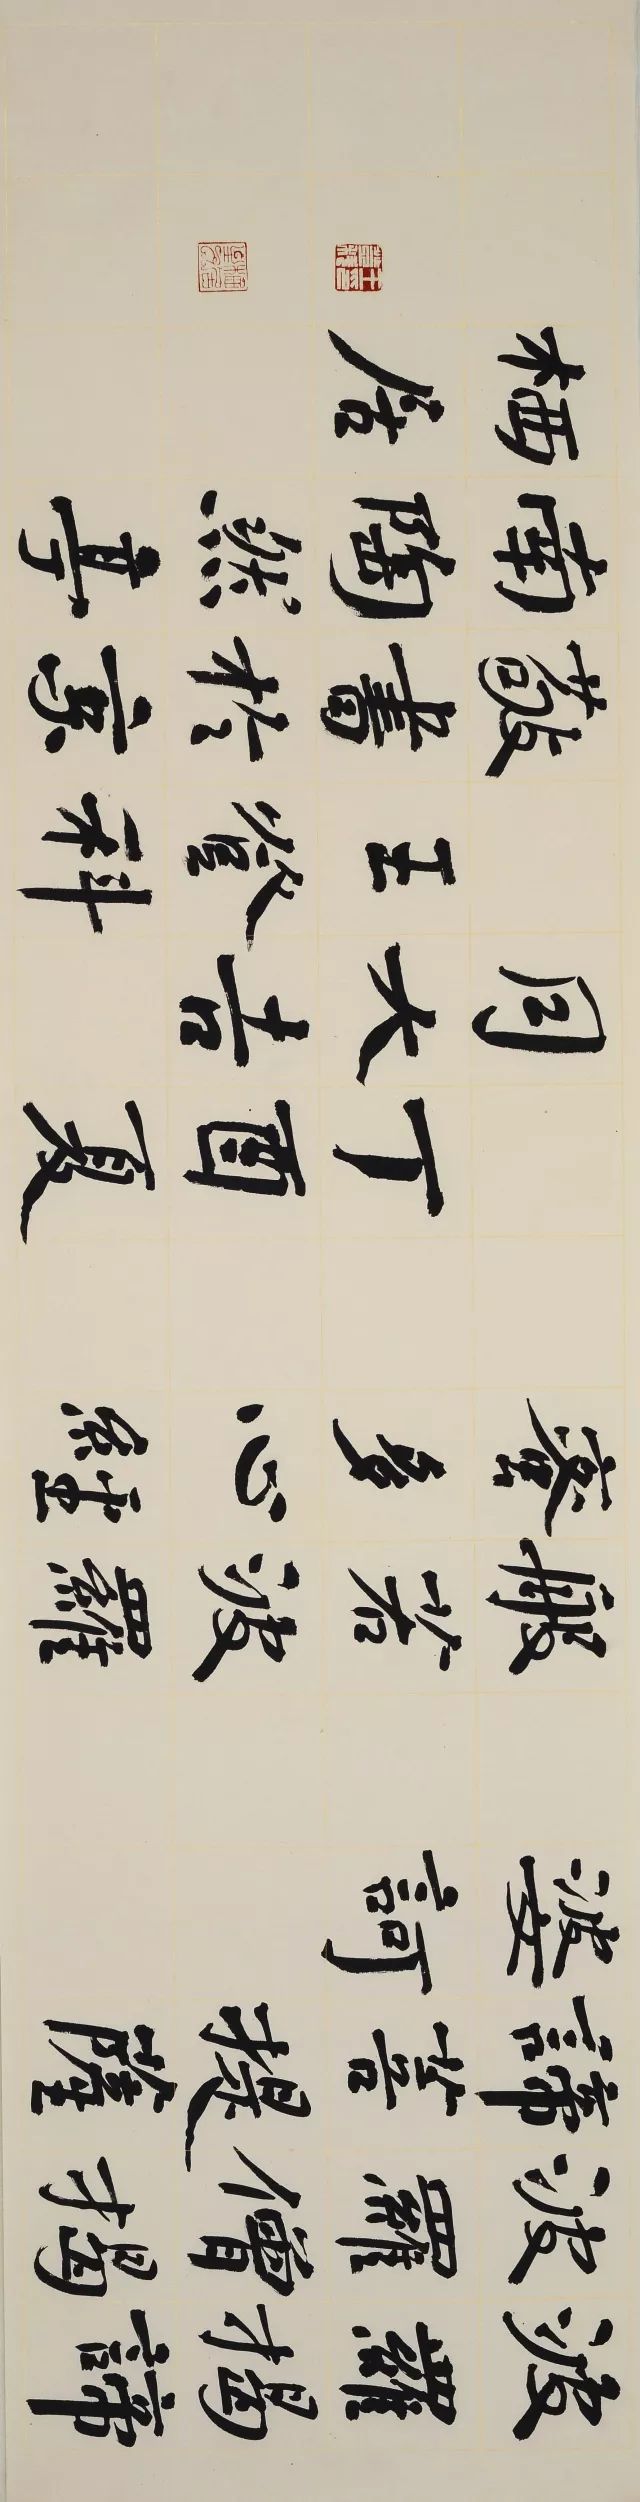 波羅揭諦
波羅僧揭
諦菩提薩
婆訶
般若波羅
蜜多心經
丁酉夏
月大吉
王登科
敬書於京
南陶然亭
栖居